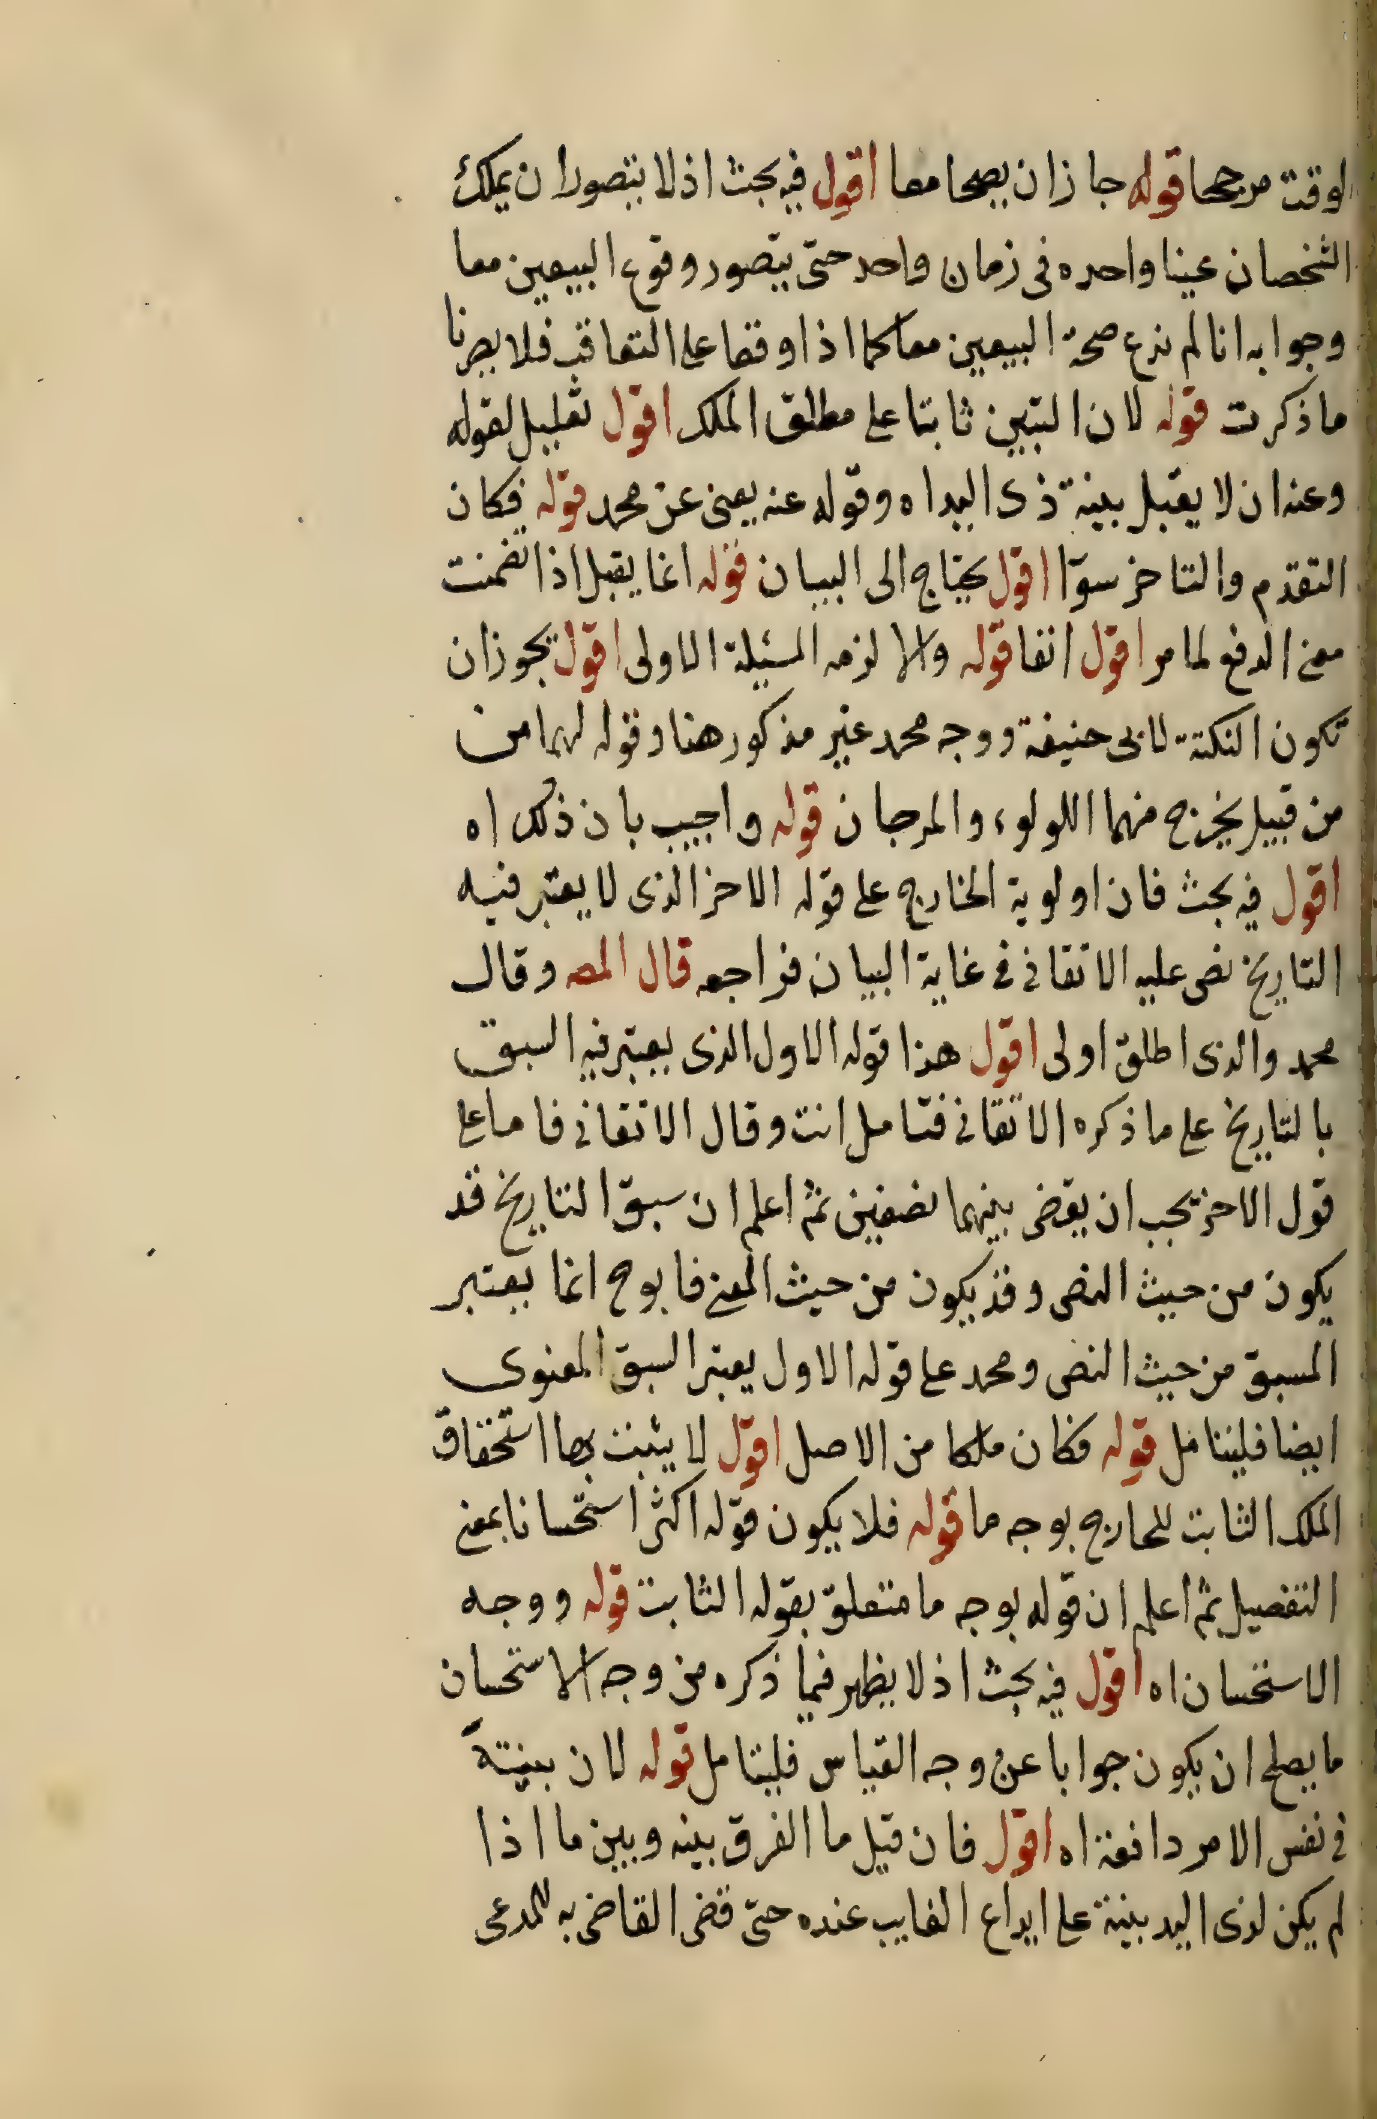 لوقت مرجحا قوله جاز ان يصحا معا اقول فيه بحث اذ لا يتصور ان يملك
الشخصان عينا واحده فى زمان واحد حتى يتصور وقوع البيعين معا
وجوابه انا لم ندع صحة البيعين معا كما اذا وقعا على التعاقب فلا يضرنا
ما ذكرت قوله لان البينتين ثابتا على مطلق الملك اقول تعليل لقوله
وعنه ان لا يقبل بينة ذى اليد اه وقوله عنه يعنى عن محمد قوله فكان
التقدم والتاخر سوآا اقول يحتاج الى البيان قوله انما يقبل اذا تضمنت
معنى الدفع لما مر اقول انفا قوله والا لزمه المسئلة الاولى اقول يجوز ان
تكون النكتة لابى حنيفة ووجه محمد غير مذكور هنا وقوله لهما من
من قبيل يخرج منهما اللولوء والمرجان قوله واجيب بان ذلك اه
اقول فيه بحث فان اولوية الخارج على قوله الاخر الذى لا يعتبر فيه
التاريخ نص عليه الاتقانى فى غاية البيان فراجعه قال المصه وقال
محمد والذى اطلق اولى اقول هذا قوله الاول الذى يعتبر فيه السبق
بالتاريخ على ما ذكره الاتقانى فتامل انت وقال الاتقانى فاما على
قول الاخر يجب ان يقضى بينهما نصفين ثم اعلم ان سبق التاريخ قد
يكون من حيث النص وقد يكون من حيث المعنى فابو ح انما يعتبر
المسبق من حيث النص ومحمد على قوله الاول يعتبر السبق المعنوى
ايضا فليتامل قوله فكان ملكا من الاصل اقول لا يثبت بها استحقاق
الملك الثابت للخارج بوجه ما قوله فلا يكون قوله اكثر استحسانا بمعنى
التفصيل ثم اعلم ان قوله بوجه ما متعلق بقوله الثابت قوله ووجه
الاستحسان اه اقول فيه بحث اذ لا يظهر فيما ذكره من وجه الاستحسان
ما يصلح ان يكون جوابا عن وجه القياس فليتامل قوله لان بينته
فى نفس الامر دافعة اه اقول فان قيل ما الفرق بينه وبين ما اذا
لم يكن لذى اليد بينة على ايداع الغايب عنده حتى قضى القاضى به للمدعى